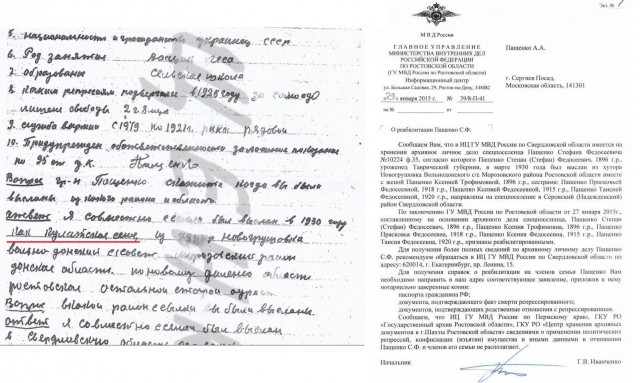 5. национальность и гражданство украинец СССР
6. Род занятия
7. образование сельская школа
8. каким репрессиям подвергался в 1928 году за самосуд
лишен свободы 2 г.
9. служба в армии с 1919 по 1921 г. рядовой
10. Предупрежден об ответственности за ложные показания
по 95 ст. У.К.
Вопрос гр-н Пащенко скажите когда вы были
высланы из какого района и области
ответ Я совместно с семьей был выслан в 1930 году
как кулацкая семья из Новогрушовка
район
донская область по новому области
ростовская
Вопрос в какой район ссылки вы были высланы.
ответ Я совместно с семьей был выслан
в Свердловскую область
Экз. №
МВД России
ГЛАВНОЕ УПРАВЛЕНИЕ
МИНИСТЕРСТВА ВНУТРЕННИХ ДЕЛ
РОССИЙСКОЙ ФЕДЕРАЦИИ
ПО РОСТОВСКОЙ ОБЛАСТИ
(ГУ МВД России по Ростовской области)
Информационный центр
ул. Большая Садовая, 29, Ростов-на-Дону, 344082
29 января 2015 г. № 39/8-П-41
на №
О реабилитации Пащенко С.Ф.
Пащенко А.А.
г. Сергиев Посад,
Московская область, 141301
Сообщаем Вам, что в ИЦ ГУ МВД России по Свердловской области имеется на
хранении архивное личное дело спецпоселенца Пащенко Стефана Федосеевича
№10224 ф.35, согласно которого Пащенко Степан (Стефан) Федосеевич, 1896 г.р.,
уроженец Таврической губернии, в марте 1930 года был выслан из хутора
Новогрушовка Вольнодонского с/с Морозовского района Ростовской области вместе
с женой Пащенко Ксенией Трофимовной, 1896 г.р., сестрами: Пащенко Прасковьей
Федосеевной, 1918 г.р., Пащенко Ксенией Федосеевной, 1915 г.р., Пащенко Таисией
Федосеевной, 1920 г.р., направлена на спецпоселение в Серовский (Надеждинский)
район Свердловской области.
По заключению ГУ МВД России по Ростовской области от 27 января 2015г.,
составленному на основании архивного дела спецпоселенца, Пащенко Степан
(Стефан) Федосеевич, 1896 г.р., Пащенко Ксения Трофимовна, 1896 г.р., Пащенко
Прасковья Федосеевна, 1918 г.р., Пащенко Ксения Федосеевна, 1915 г.р., Пащенко
Таисия Федосеевна, 1920 г.р., признаны реабилитированными.
Для получения более полных сведений по архивному личному делу Пащенко
С.Ф. рекомендуем обращаться в ИЦ ГУ МВД России по Свердловской области по
адресу: 620014, г. Екатеринбург, пр. Ленина, 15.
Для получения справок о реабилитации на членов семьи Пащенко Вам
необходимо направить в наш адрес соответствующее заявление, приложив к нему
нотариально заверенные копии:
паспорта гражданина РФ;
документа, подтверждающего факт смерти репрессированного;
документов, подтверждающих родственные отношения с репрессированным.
Сообщаем, что ИЦ ГУ МВД России по Пермскому краю, ГКУ РО
«Государственный архив Ростовской области», ГКУ РО «Центр хранения архивных
документов в г.Шахты Ростовской области» сведениями о применении политических
репрессий, конфискации (изъятии) имущества и иными данными в отношении
Пащенко С.Ф. и членов его семьи не располагают.
Начальник Г.В. Иванченко